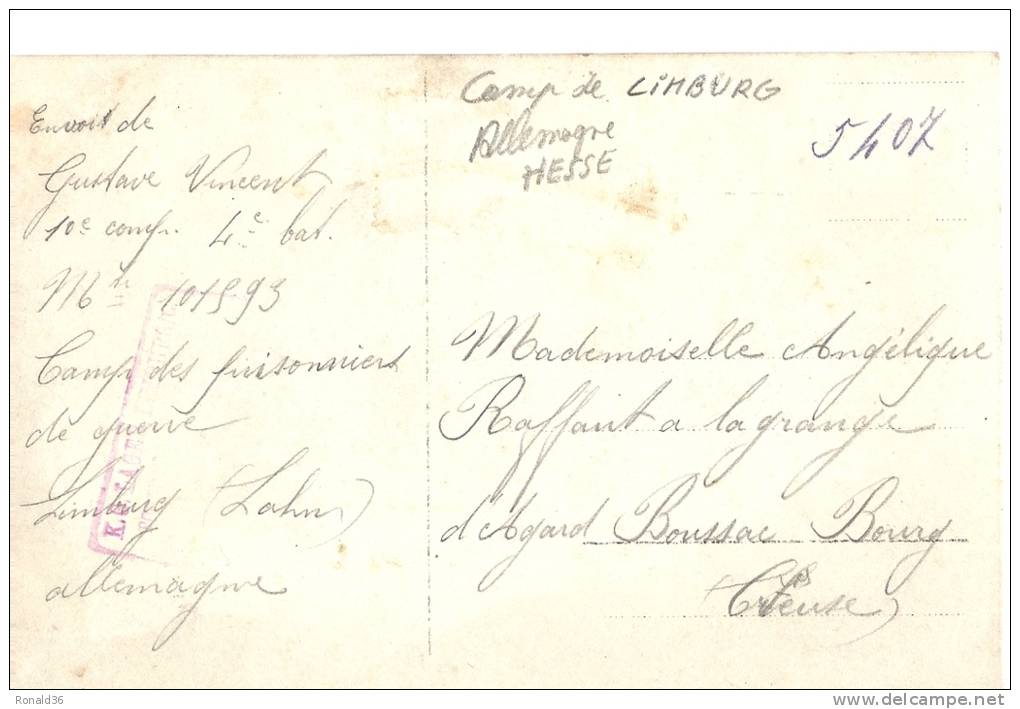 Envoit de
Gustave Vincent
10e comp. 4e bat.
Mle 101593
Camp des prisonniers
de guerre
Limburg (Lahn)
allemagne
Camp de LIMBURG
Allemagne
HESSE
5407
Mademoiselle Angélique
Raffaut a lagrange
d'Agard Boussac Bourg
(Creuse)
Ronald36
www.delcampe.net